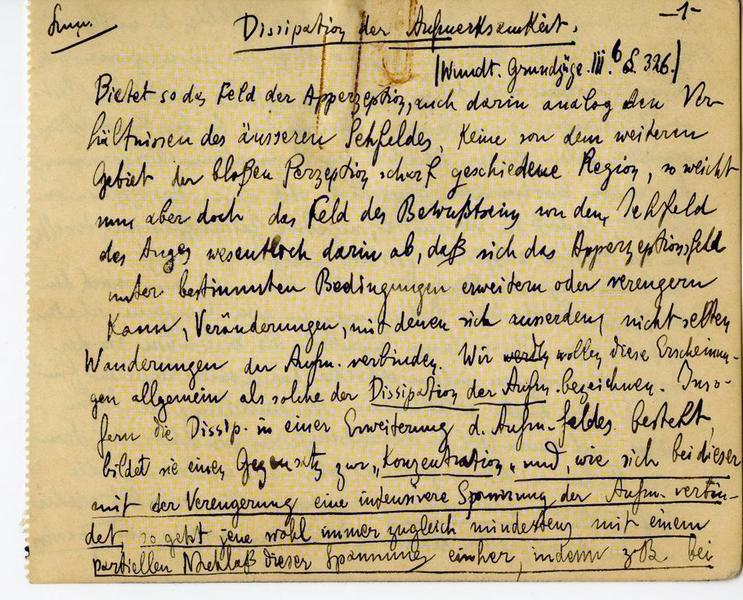 -1-
Dissipation der Aufmerksamkeit.
(Wundt. Grundzüge. III.⁶ S. 326.)
Bietet so das Feld der Apperzeption, auch darin analog den Ver-
hältnissen des äusseren Sehfeldes, keine von dem weiteren
Gebiet der bloßen Perzeption scharf geschiedene Region, so weicht
nun aber doch das Feld des Bewußtseins von dem Sehfeld
des Auges wesentlich darin ab, daß sich das Apperzeptionsfeld
unter bestimmten Bedingungen erweitern oder verengern
kann, Veränderungen, mit denen sich ausserdem nicht selten
Wanderungen der Aufm. verbinden. Wir wollen diese Erscheinun-
gen allgemein als solche der Dissipation der Aufm. bezeichnen. Inso-
fern die Dissip. in einer Erweiterung d. Aufm.-feldes besteht,
bildet sie einen Gegensatz zur „Konzentration„ und, wie sich bei dieser
mit der Verengerung eine intensivere Spannung der Aufm. verbin-
det, so geht jene wohl immer zugleich mindestens mit einem
partiellen Nachlaß dieser Spannung einher, indem z.B. bei